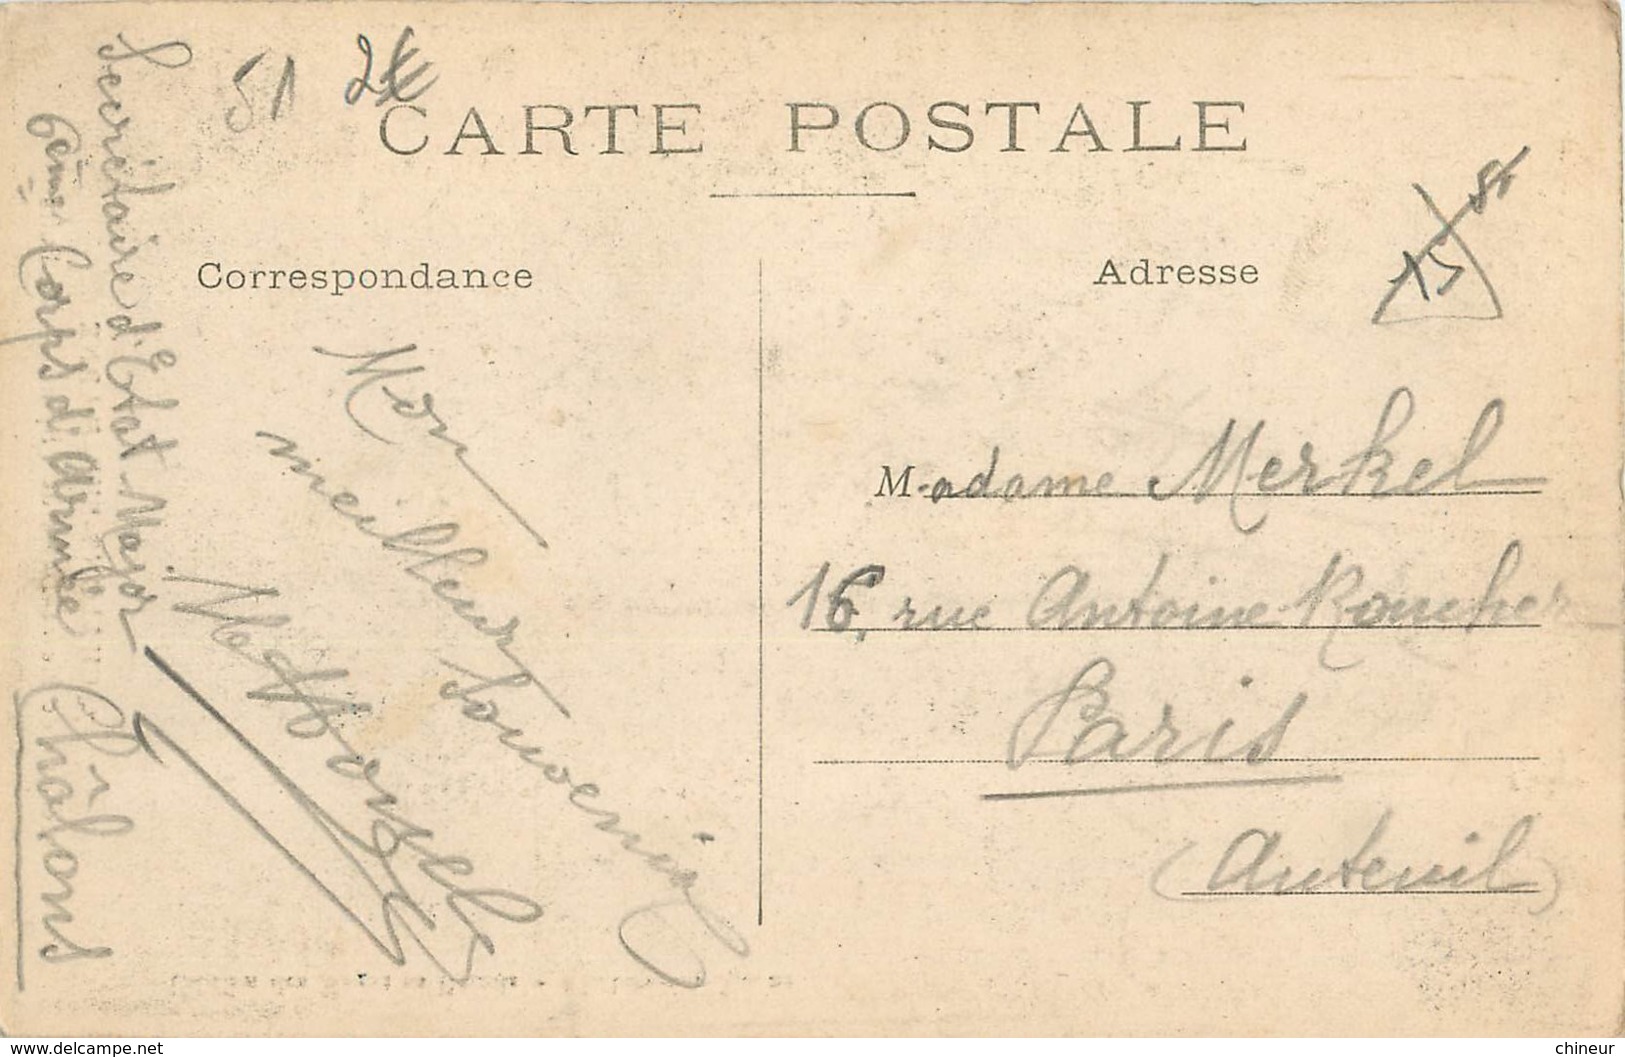 51 2€
CARTE POSTALE
Correspondance
Adresse
15
Secrétaire d'Etat Major
6ème Corps d'Armée
Châlons
Mon
meilleur
souvenir
Madame Merkel
16, rue Antoine Roucher
Paris
(Auteuil)
www.delcampe.net
chineur